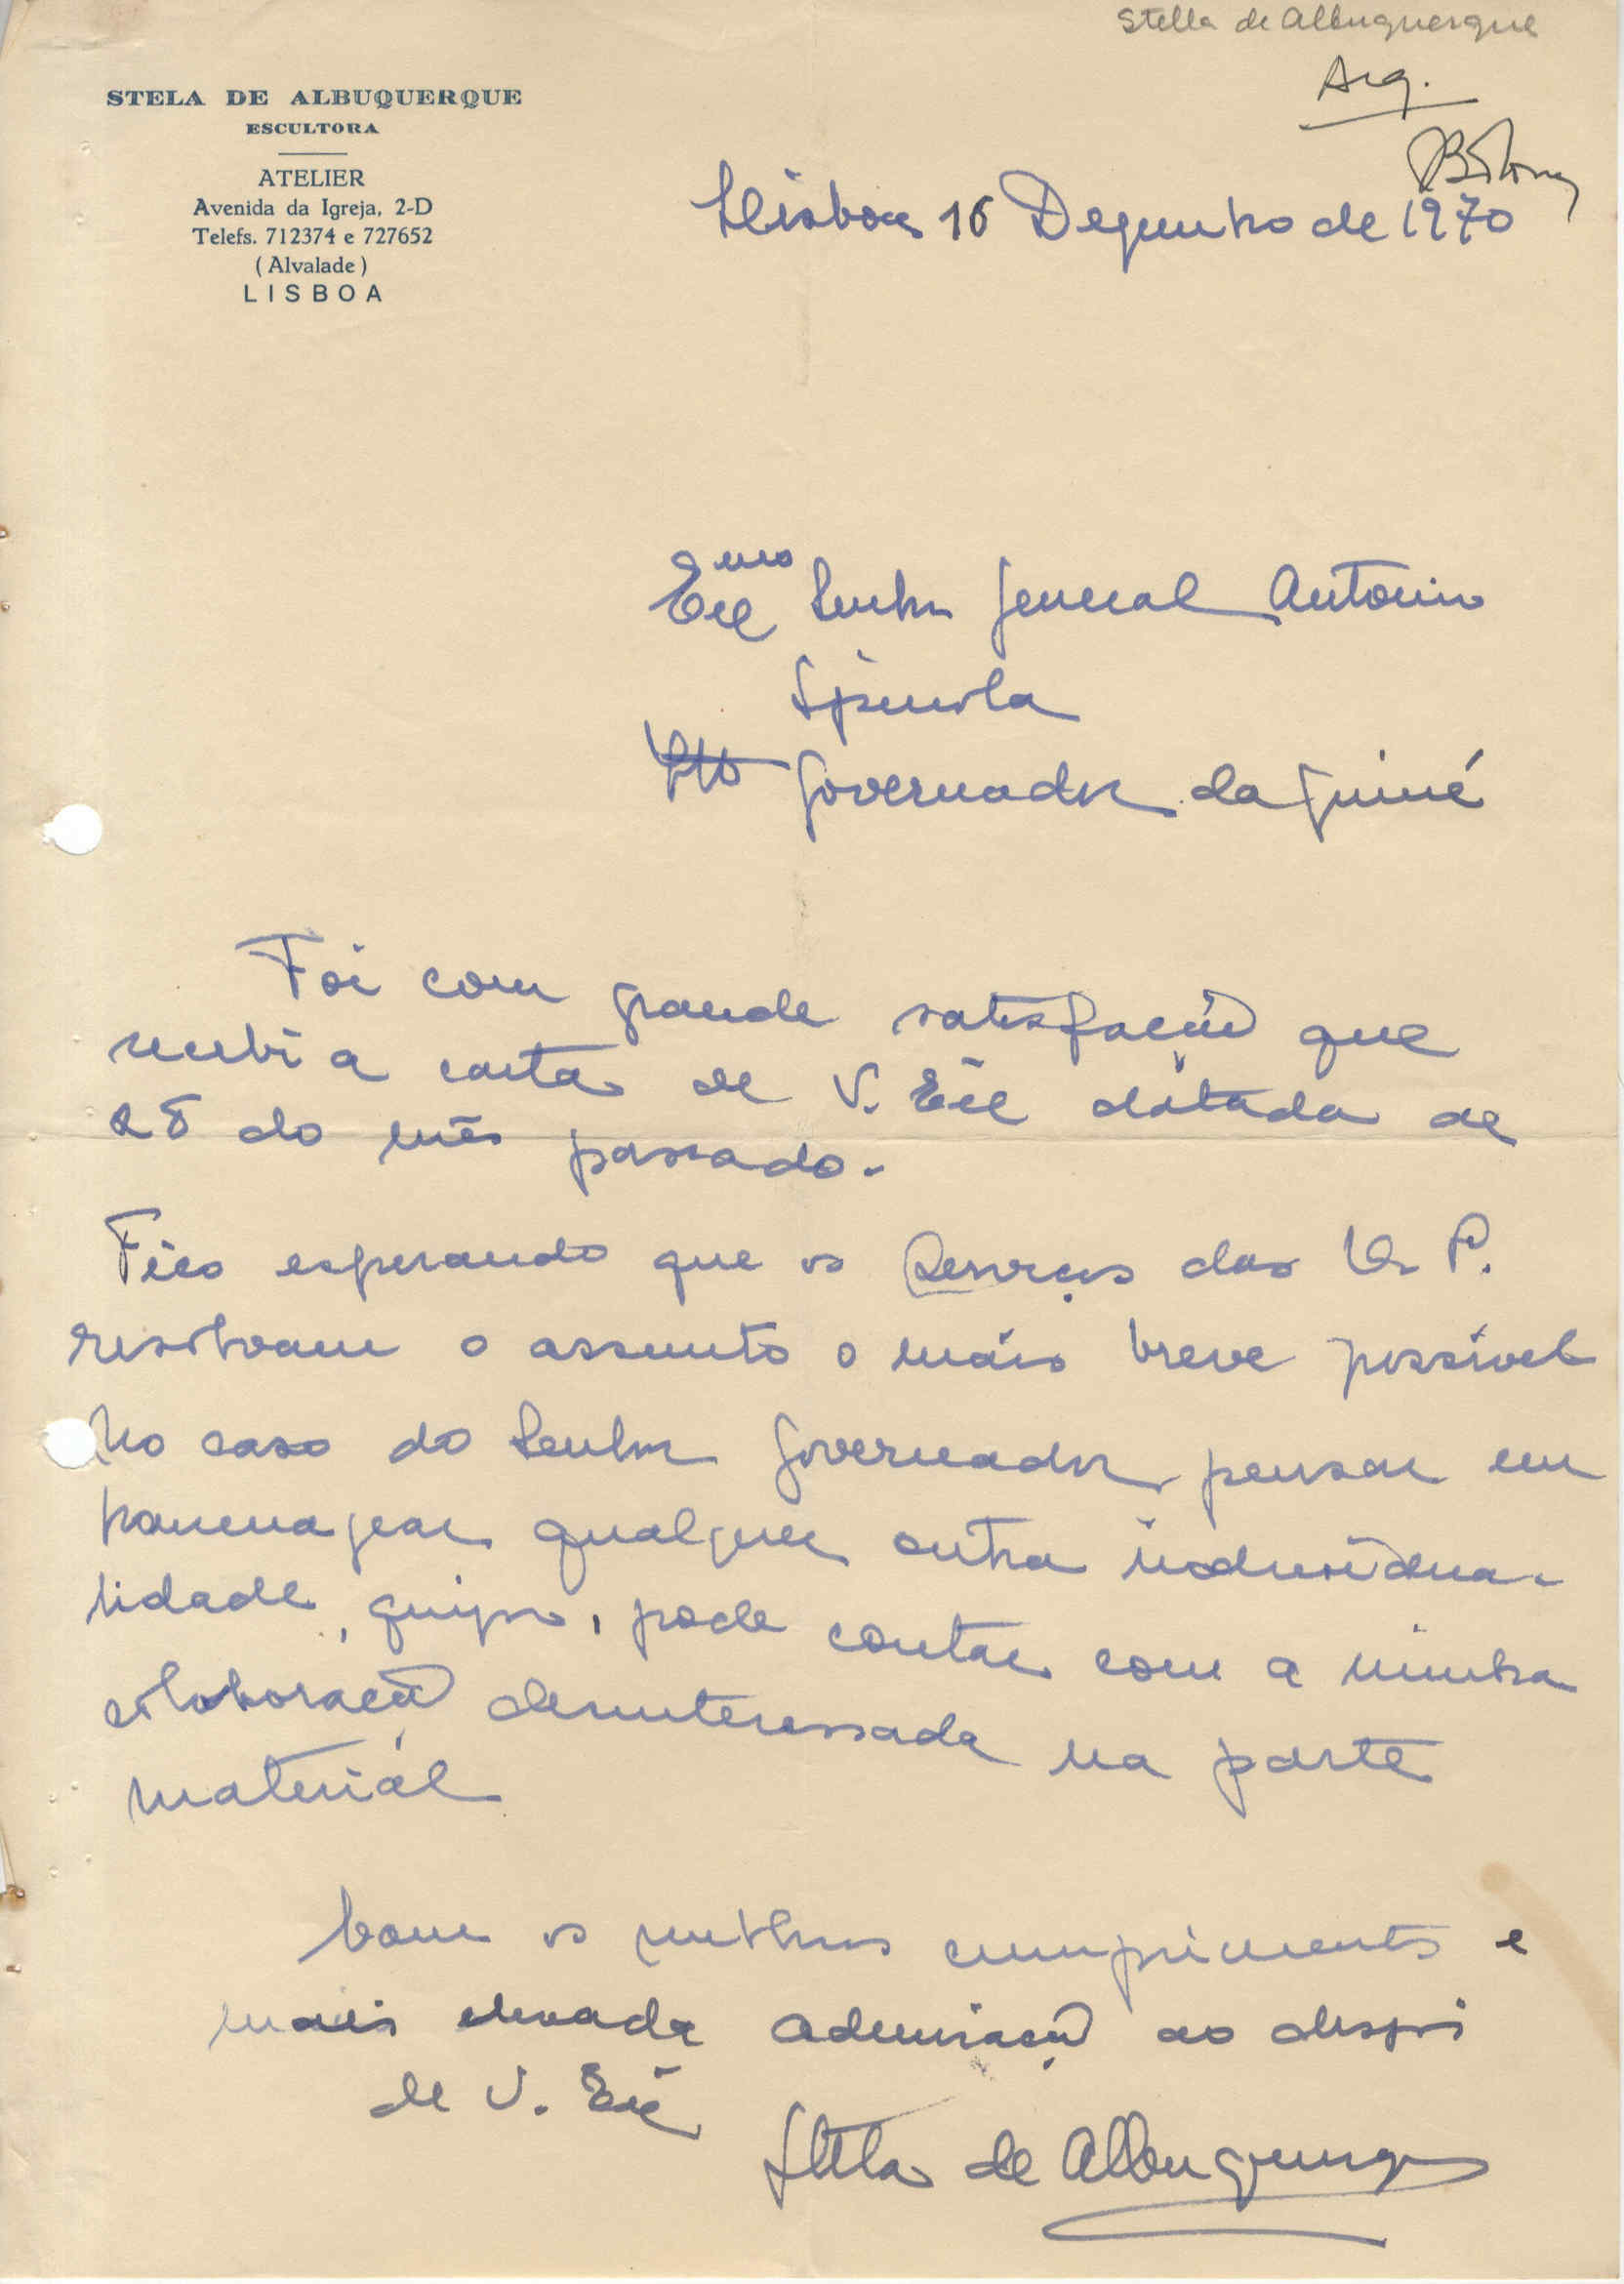 Stella de Albuquerque
Arq.
STELA DE ALBUQUERQUE
ESCULTORA
ATELIER
Avenida da Igreja, 2-D
Telefs. 712374 e 727652
(Alvalade)
LISBOA
Lisboa 16 Dezembro de 1970
Exmo Senhor General Antonio
Spinola
Governador da Guiné
Foi com grande satisfação que
recebi a carta de V. Exe datada de
28 do mês passado.
Fico esperando que os Serviços das O. P.
resolvam o assunto o mais breve possivel
No caso do Senhor Governador pensar em
homenagear qualquer outra individua-
lidade, pode contar com a minha
colaboração desinteressada na parte
material
Com os melhores cumprimentos e
mais elevada admiração ao dispor
de V. Exe
Stela de Albuquerque